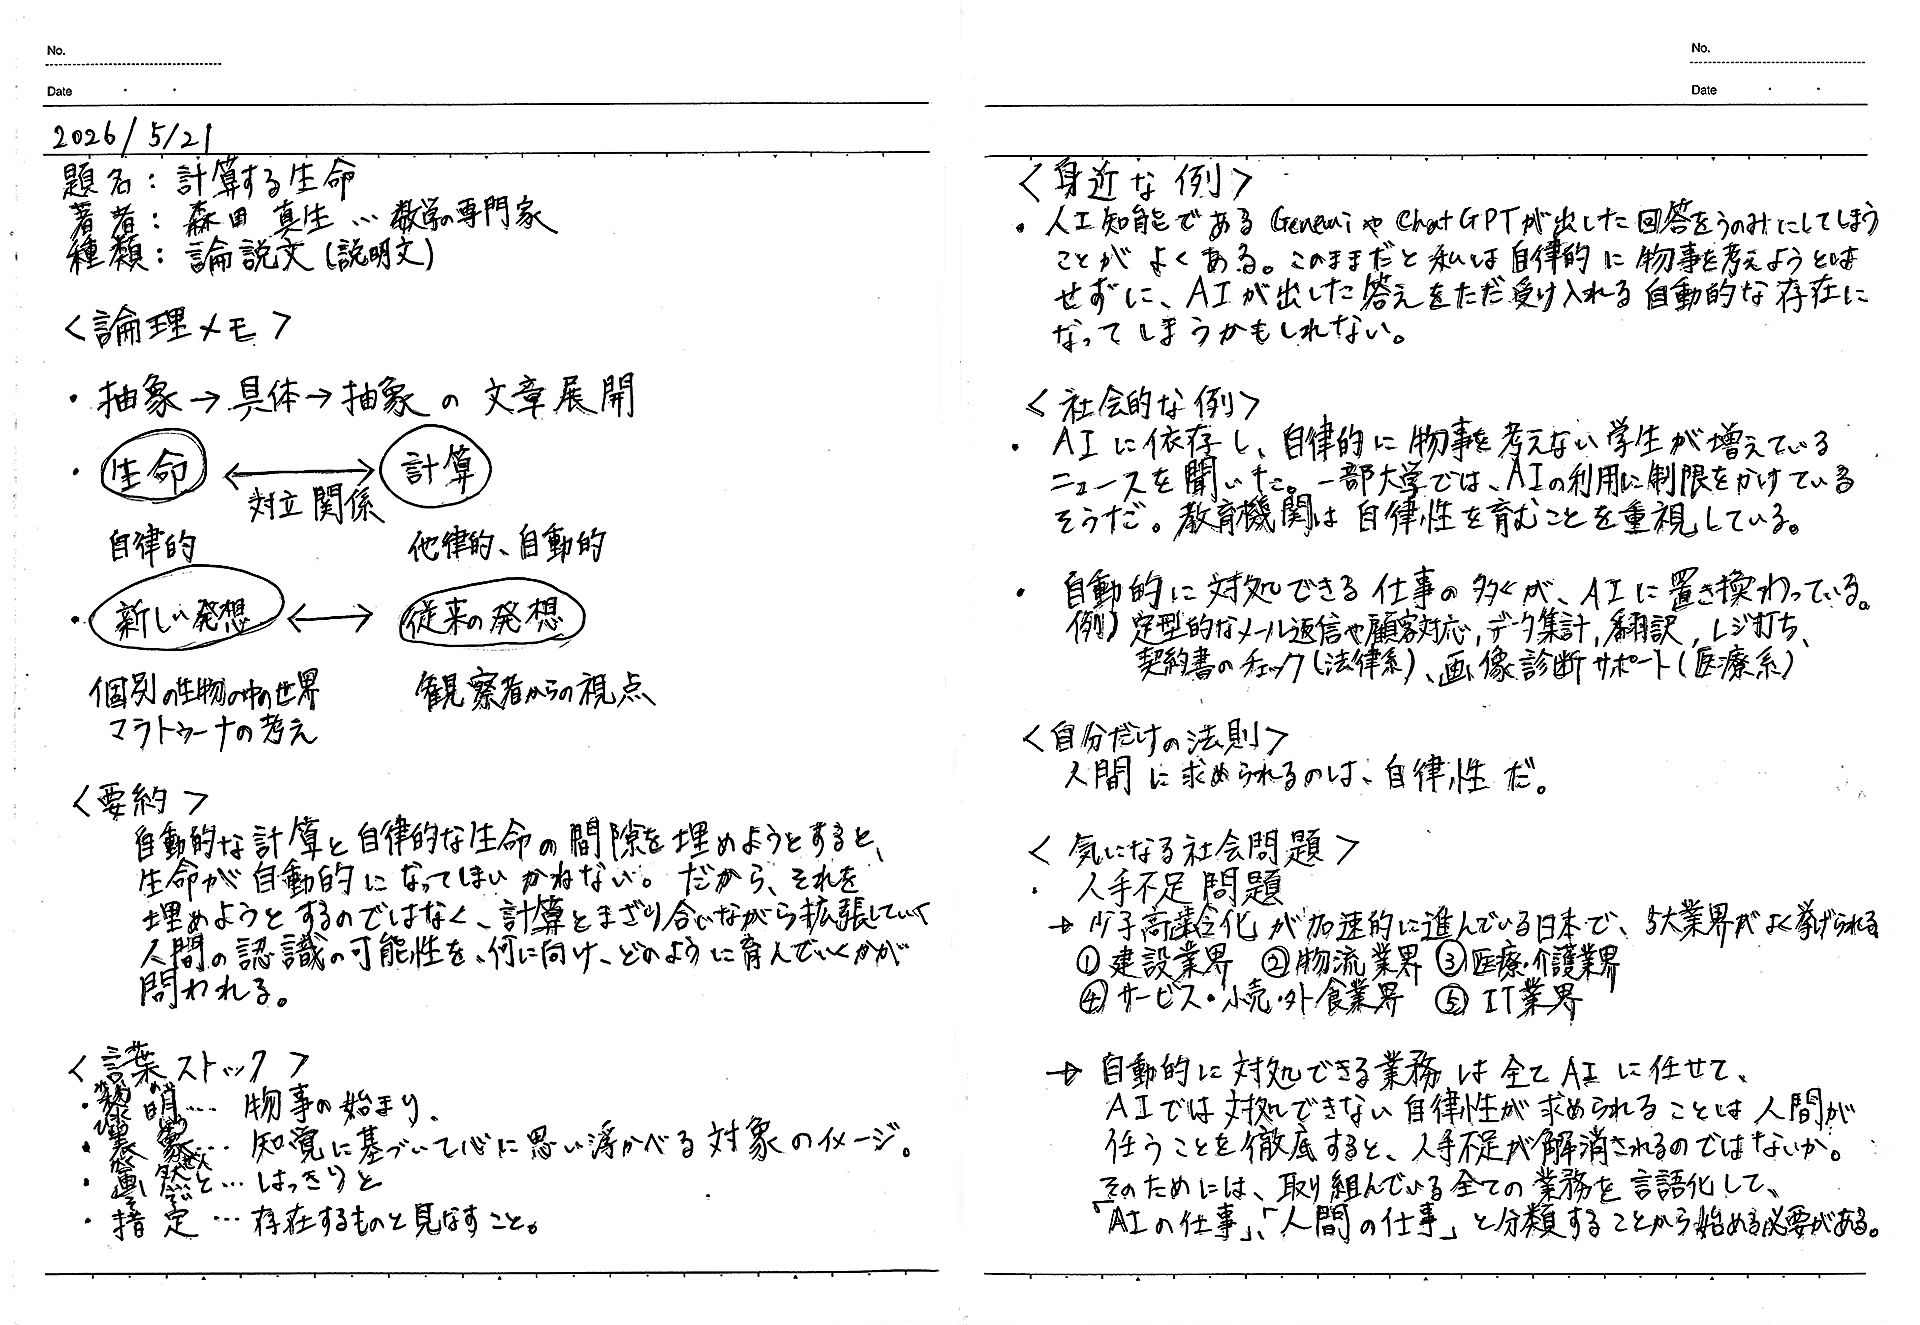 No.
Date
2026/5/21
題名：計算する生命
著者：森田 真生 … 数学の専門家
種類：論説文(説明文)
＜論理メモ＞
・抽象→具体→抽象の文章展開
・生命 ⟷ 計算
対立関係
自律的 他律的、自動的
・新しい発想 ⟷ 従来の発想
個別の生物の中の世界 観察者からの視点
マラトゥーナの考え
＜要約＞
自動的な計算と自律的な生命の間隙を埋めようとすると、
生命が自動的になってしまいかねない。だから、それを
埋めようとするのではなく、計算とまざり合いながら拡張していく
人間の認識の可能性を、何に向け、どのように育んでいくかが
問われる。
＜言葉ストック＞
・ 明… 物事の始まり、
・表象… 知覚に基づいて心に思い浮かべる対象のイメージ。
・画然と… はっきりと
・措定 … 存在するものと見なすこと。
No.
Date
＜身近な例＞
・人工知能であるGenemiやChatGPTが出した回答をうのみにしてしまう
ことがよくある。このままだと私は自律的に物事を考えようとは
せずに、AIが出した答えをただ受け入れる自動的な存在に
なってしまうかもしれない。
＜社会的な例＞
・AIに依存し、自律的に物事を考えない学生が増えている
ニュースを聞いた。一部大学では、AIの利用に制限をかけている
そうだ。教育機関は自律性を育むことを重視している。
・自動的に対処できる仕事の多くが、AIに置き換わっている。
例）定型的なメール返信や顧客対応,データ集計,翻訳,レジ打ち、
契約書のチェック(法律系)、画像診断サポート(医療系)
＜自分だけの法則＞
人間に求められるのは、自律性だ。
＜気になる社会問題＞
・人手不足問題
→少子高齢化が加速的に進んでいる日本で、5大業界がよく挙げられる
①建設業界 ②物流業界 ③医療・介護業界
④サービス・小売・外食業界 ⑤IT業界
→自動的に対処できる業務は全てAIに任せて、
AIでは対処できない自律性が求められることは人間が
任うことを徹底すると、人手不足が解消されるのではないか。
そのためには、取り組んでいる全ての業務を言語化して、
「AIの仕事」、「人間の仕事」と分類することから始める必要がある。